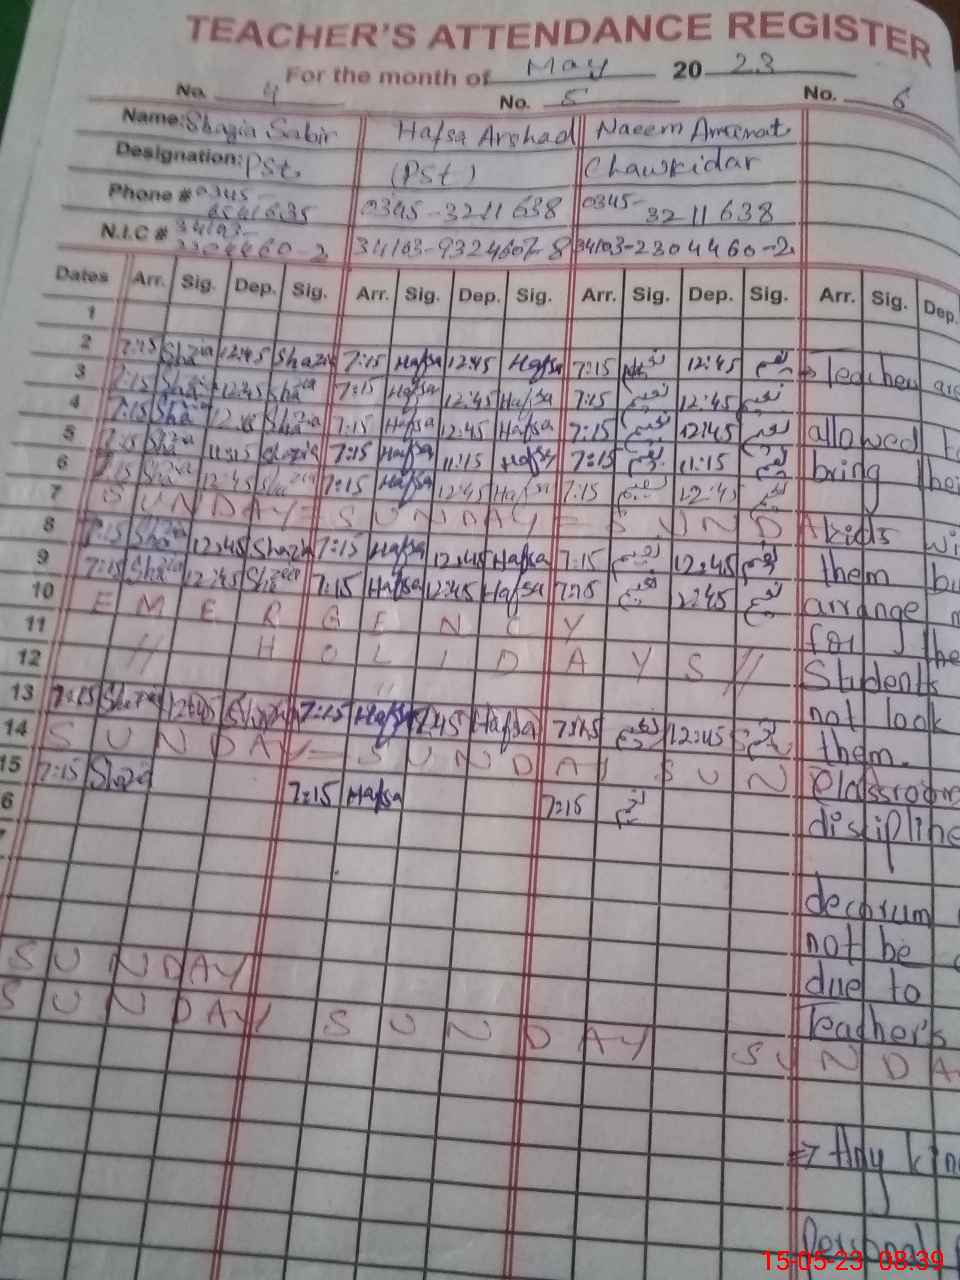 TEACHER'S ATTENDANCE REGISTER
For the month of May 20 23
No. 4 No. 5 No. 6
Name: Shazia Sabir Hafsa Arshad Naeem Ameenat
Designation: Pst. (Pst) Chawkidar
Phone # 0345- 0345-3211638 0345-3211638
6541635
N.I.C # 34103- 34103-9324607-8 34103-2304460-2
2304460-2
Dates Arr. Sig. Dep. Sig. Arr. Sig. Dep. Sig. Arr. Sig. Dep. Sig. Arr. Sig. Dep.
1
2 7:15 Shazia 12:45 Shazia 7:15 Hafsa 12:45 Hafsa 7:15 نعیم 12:45 نعیم → Teacher are
3 7:15 Shazia 12:45 Shazia 7:15 Hafsa 12:45 Hafsa 7:15 نعیم 12:45 نعیم
4 7:15 Shazia 12:45 Shazia 7:15 Hafsa 12:45 Hafsa 7:15 نعیم 12:45 نعیم allowed to
5 7:15 Shazia 11:15 Shazia 7:15 Hafsa 11:15 Hafsa 7:15 نعیم 11:15 نعیم bring their
6 7:15 Shazia 12:45 Shazia 7:15 Hafsa 12:45 Hafsa 7:15 نعیم 12:45 نعیم
7 SUNDAY = SUNDAY = SUNDA kids wi
8 7:15 Shazia 12:45 Shazia 7:15 Hafsa 12:45 Hafsa 7:15 نعیم 12:45 نعیم them bu
9 7:15 Shazia 12:45 Shazia 7:15 Hafsa 12:45 Hafsa 7:15 نعیم 12:45 نعیم arrange
10 EMERGENCY
11 // HOLIDAYS // for the
12 // Students
13 7:15 Shazia 12:45 Shazia 7:15 Hafsa 12:45 Hafsa 7:15 نعیم 12:45 نعیم not look
14 SUNDAY = SUNDAY SUN them.
15 7:15 Shazia 7:15 Hafsa 7:15 نعیم Classroom
6 discipline
decorum
not be
SUNDAY due to
SUNDAY SUNDAY Teacher's
SUNDA
⇒ Any kin
Personal
15-05-23 08:39